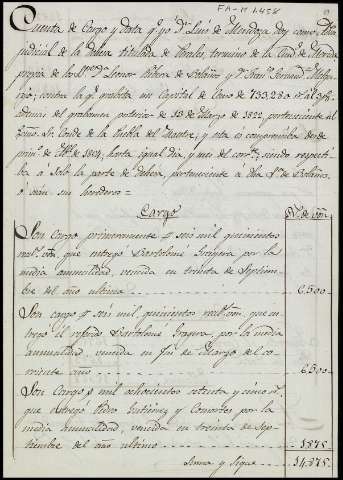 FA-M 1.458
Cuenta de Cargo y Data q.e yo D.n Luis de Mendoza doy como
judicial de la Dehesa titulada de Perales, termino de la Ciud.d de Merida
propia de los D.a Leonor Rivera de Bolaños y D.n Juan
contra la q.e gravita un Capital de Censo de 733,280
ademas del gravamen anterior de 13 de Marzo de 1822, perteneciente al
Conde de la Puebla del Maestre; y esta es comprensiva desde
prim.o de de 1824, hasta igual dia, y mes del corr.te; siendo respecti-
ba á solo la parte de Dehesa, perteneciente á dha S.ra de Bolaños,
ó sean sus herederos =
Cargo
R.s de von
Son cargo primeramente p.r seis mil quinientos
rea.s von, que entregó Bartolomé Gragera por la
media annualidad, vencida en treinta de Septiem-
bre del año ultimo 6.500
Son cargo p.r seis mil quinientos real.s von, que en-
tregó el referido Bartolomé Gragera, por la media
annualidad, vencida en fin de Marzo del co-
rriente año 6.500
Son Cargo p.r mil ochocientos setenta y cinco r.s
que entregó Pedro Gutierrez y Consortes por la
media annualidad, vencida en treinta de Sep-
tiembre del año ultimo 1.875
Suma y Sigue 14.875